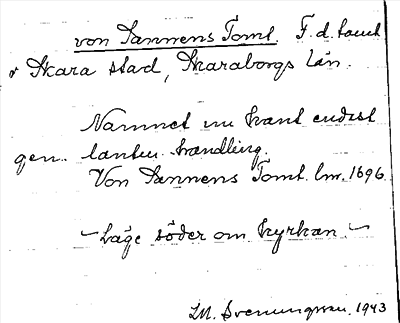 von Sannens Tomt. F. d. tomt
v Skara stad, Skaraborgs län.
Namnet nu känt endast
gen. lantm. handling.
Von Sannens Tomt lm. 1696.
Läge söder om kyrkan.
M. Svenungsson. 1943